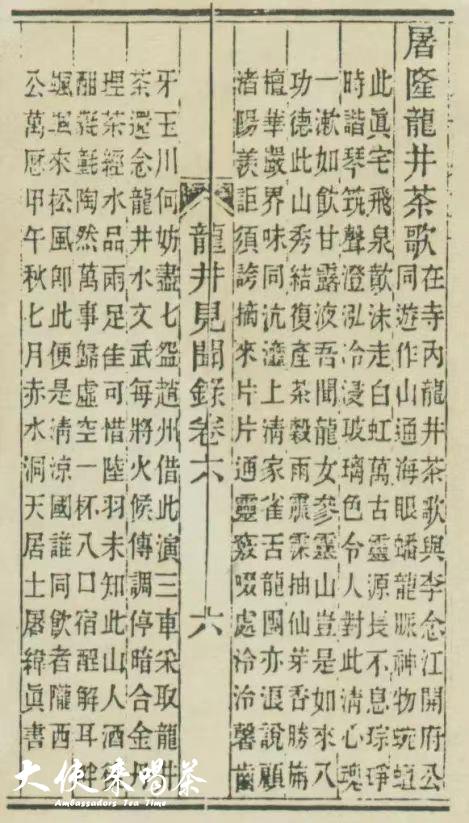 屠隆龍井茶歌
在寺內龍井茶歌與李念江開府公
同遊作山通海眼蟠龍脈神物蜿蜒
此眞宅飛泉歕沫走白虹萬古靈源長不息琮琤
時諧琴筑聲澄泓冷浸玻璃色令人對此清心魂
一漱如飲甘露液吾聞龍女參靈山豈是如來八
功德此山秀結復產茶穀雨霢霂抽仙芽香勝旃
檀華嚴界味同沆瀣上清家雀舌龍團亦浪說顧
渚陽羨詎須誇摘來片片通靈竅啜處泠泠馨齒
龍井見聞錄卷六 六
牙玉川何妨盡七盌趙州借此演三車采取龍井
茶還念龍井水文武每將火候傳調停暗合金丹
理茶經水品兩足佳可惜陸羽未知此山人酒後
酣氍毹陶然萬事歸虛空一杯入口宿酲解耳畔
颯颯來松風卽此便是清涼國誰同飲者隴西
公萬厯甲午秋七月赤水洞天居士屠緯眞書
大使来喝茶
Ambassadors Tea Time